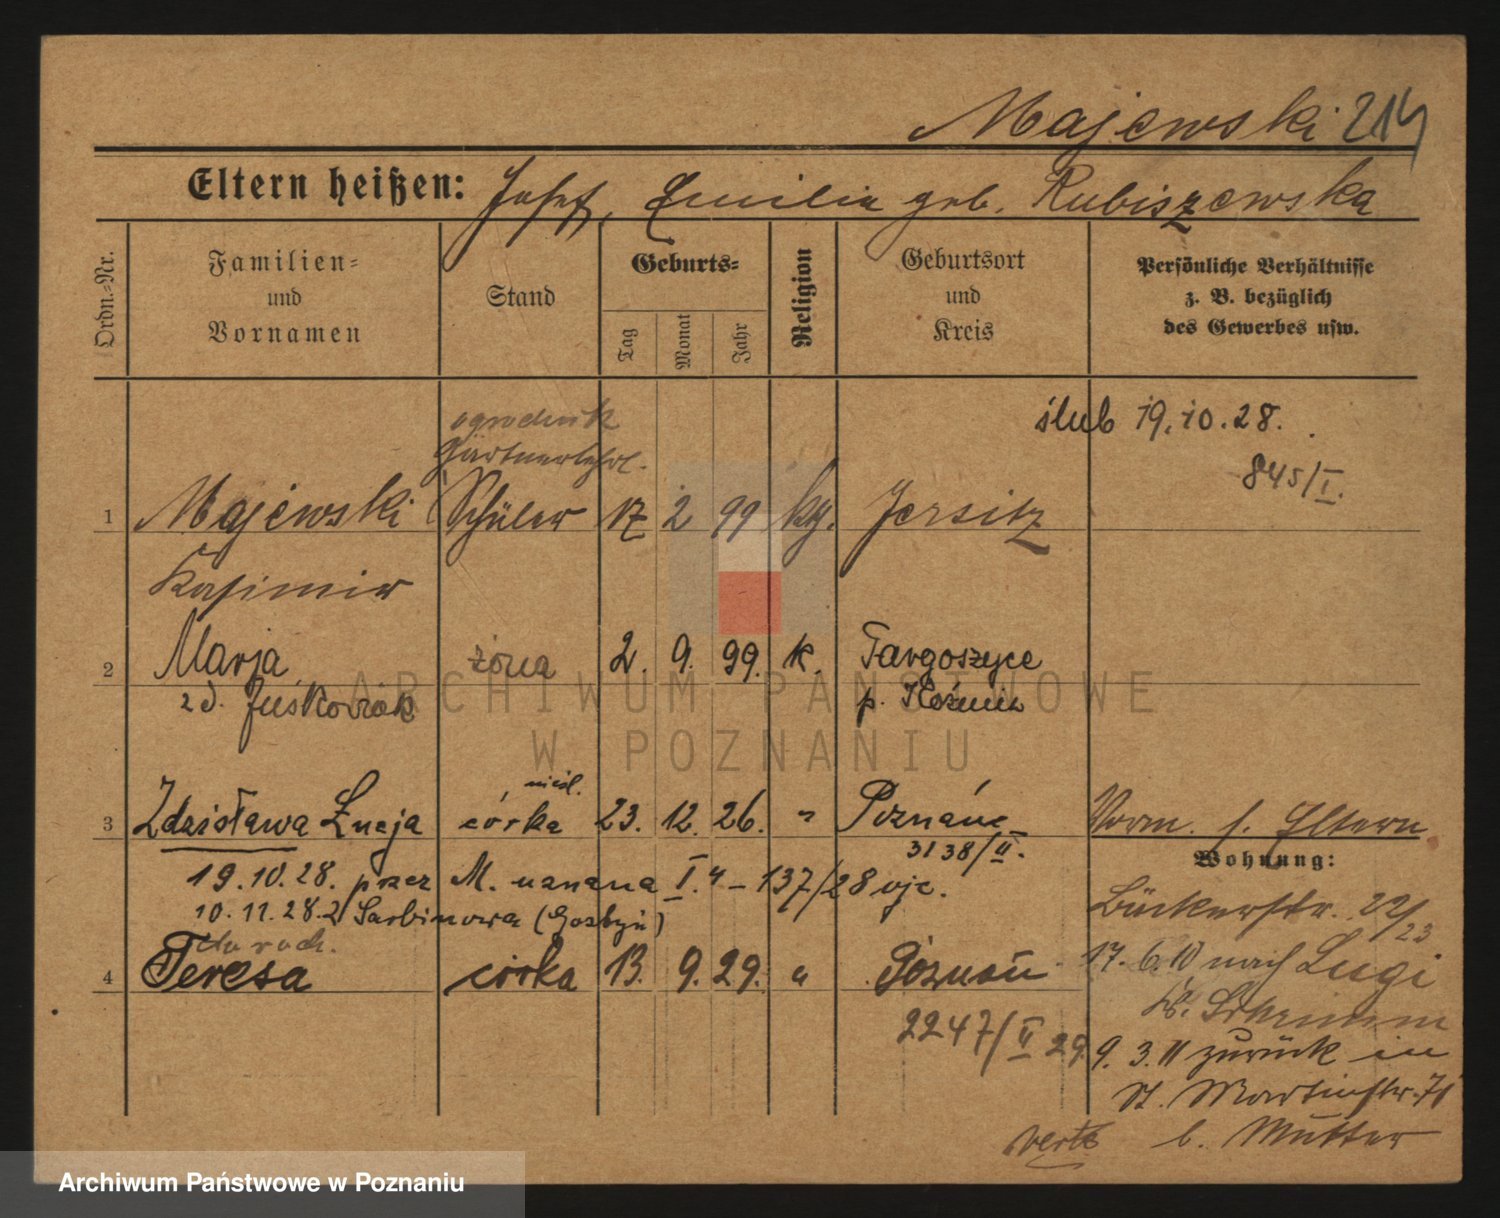 Majewski 214
Eltern heißen: Josef, Emilia geb. Rubiszewska
Ordn.=Nr.
Familien=
und
Vornamen
Stand
Geburts=
Tag
Monat
Jahr
Religion
Geburtsort
und
Kreis
Persönliche Verhältnisse
z. B. bezüglich
des Gewerbes usw.
ślub 19.10.28.
845/I.
ogrodnik
Gärtnerlehrl.
1 Majewski Schüler 17 2 99 kg. Jersitz
Kasimir
2 Marja żona 2. 9. 99. k. Targoszyce
z d. Juśkowiak p. Koźmin
nieśl.
3 Zdzisława Łucja córka 23. 12. 26. " Poznań
3138/II.
Vorm. s. Eltern
19.10.28. przez M. uznana I.4-137/28
10.11.28. z Sarbinowa (Gostyń)
4 Teresa córka 13. 9. 29. " Poznań
2247/II 29.
Wohnung:
Bückerstr. 22/23
17. 6. 10 nach Lugi
Kr. Schrimm
9. 3. 11 zurück in
St. Martinstr. 71
b. Mutter
verte
ARCHIWUM PAŃSTWOWE
W POZNANIU
Archiwum Państwowe w Poznaniu